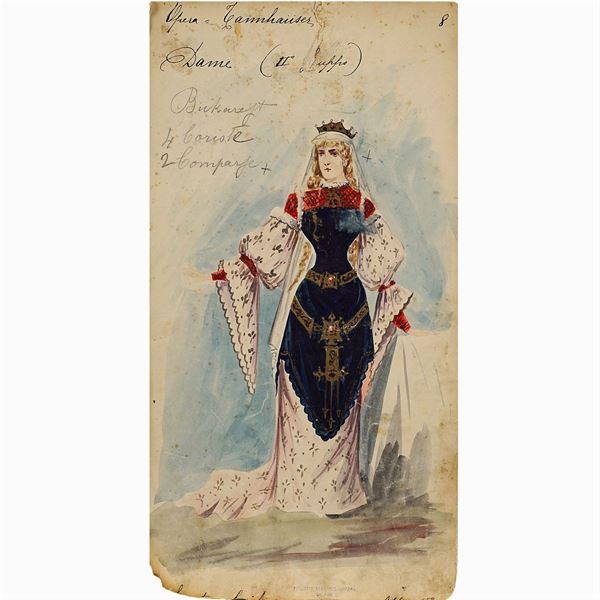 Opera = Tannhauser
8
Dame (II Gruppo)
Bukarest
4 Coriste
2 Comparse +
+